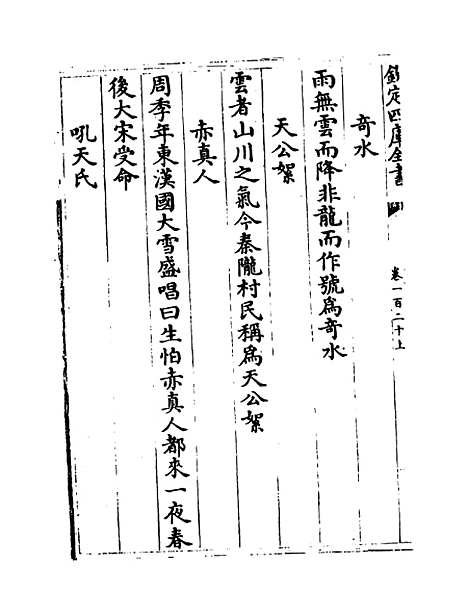 欽定四庫全書
卷一百二十上
奇水
雨無雲而降非龍而作號為奇水
天公絮
雲者山川之氣今秦隴村民稱為天公絮
赤真人
周季年東漢國大雪盛唱曰生怕赤真人都來一夜春
後大宋受命
吼天氏